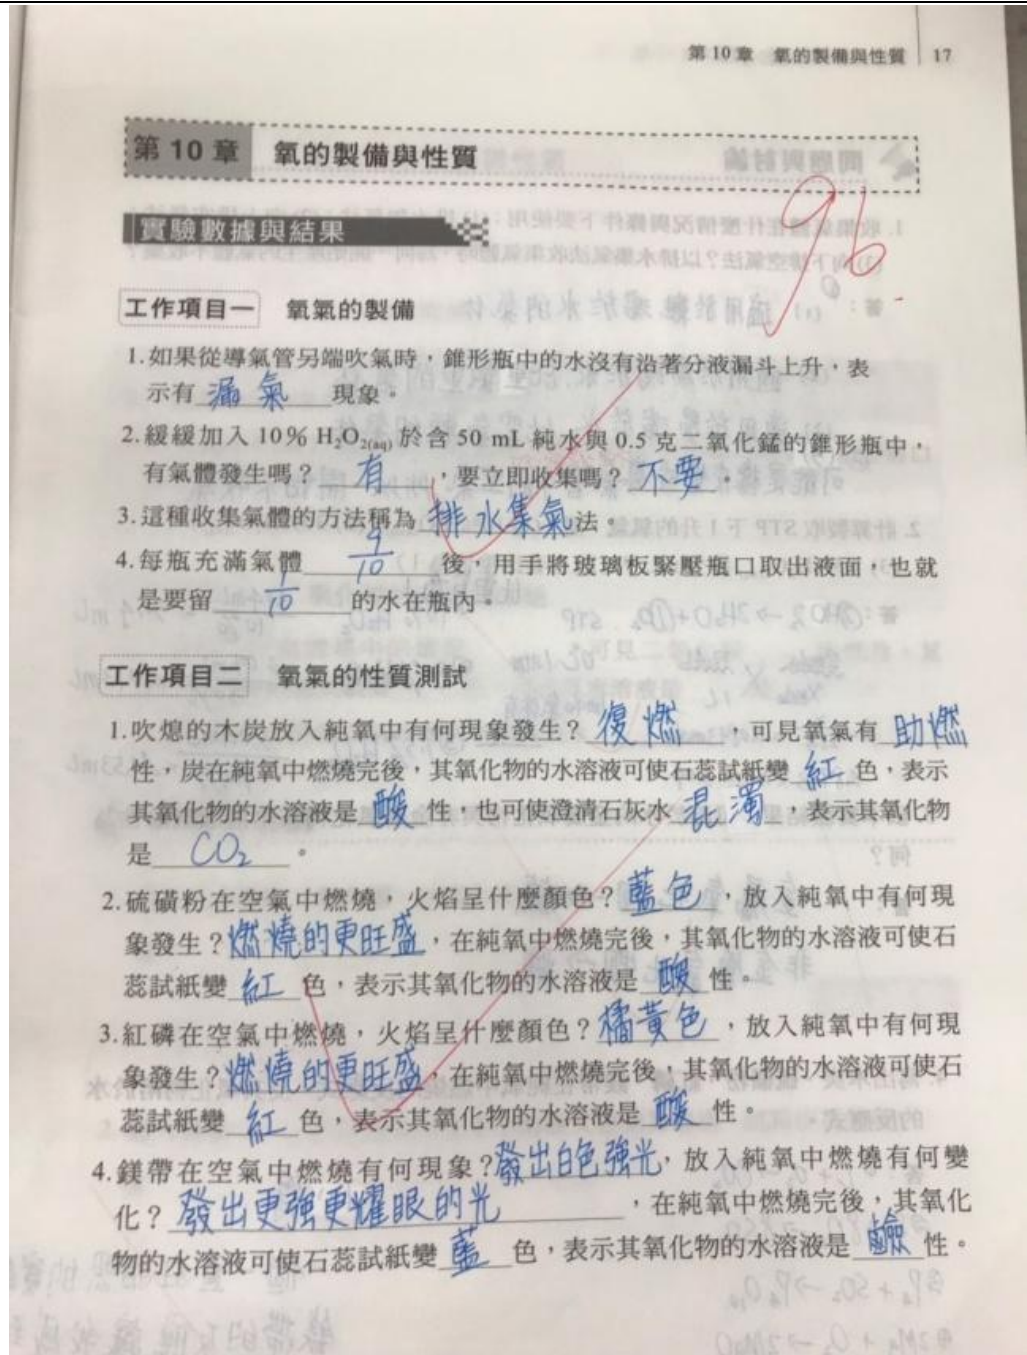 第10章 氧的製備與性質 17
第 10 章 氧的製備與性質
96
實驗數據與結果
工作項目一 氧氣的製備
1.如果從導氣管另端吹氣時，錐形瓶中的水沒有沿著分液漏斗上升，表
示有 漏氣 現象。
2.緩緩加入10% H₂O₂(aq) 於含50 mL 純水與0.5克二氧化錳的錐形瓶中，
有氣體發生嗎？ 有 ，要立即收集嗎？ 不要 。
3.這種收集氣體的方法稱為 排水集氣 法。
4.每瓶充滿氣體 9/10 後，用手將玻璃板緊壓瓶口取出液面，也就
是要留 1/10 的水在瓶內。
工作項目二 氧氣的性質測試
1.吹熄的木炭放入純氧中有何現象發生？ 復燃 ，可見氧氣有 助燃
性，炭在純氧中燃燒完後，其氧化物的水溶液可使石蕊試紙變 紅 色，表示
其氧化物的水溶液是 酸 性，也可使澄清石灰水 混濁 ，表示其氧化物
是 CO₂ 。
2.硫磺粉在空氣中燃燒，火焰呈什麼顏色？ 藍色 ，放入純氧中有何現
象發生？燃燒的更旺盛，在純氧中燃燒完後，其氧化物的水溶液可使石
蕊試紙變 紅 色，表示其氧化物的水溶液是 酸 性。
3.紅磷在空氣中燃燒，火焰呈什麼顏色？橘黃色 ，放入純氧中有何現
象發生？燃燒的更旺盛，在純氧中燃燒完後，其氧化物的水溶液可使石
蕊試紙變 紅 色，表示其氧化物的水溶液是 酸 性。
4.鎂帶在空氣中燃燒有何現象？發出白色強光，放入純氧中燃燒有何變
化？ 發出更強更耀眼的光 ，在純氧中燃燒完後，其氧化
物的水溶液可使石蕊試紙變 藍 色，表示其氧化物的水溶液是 鹼 性。